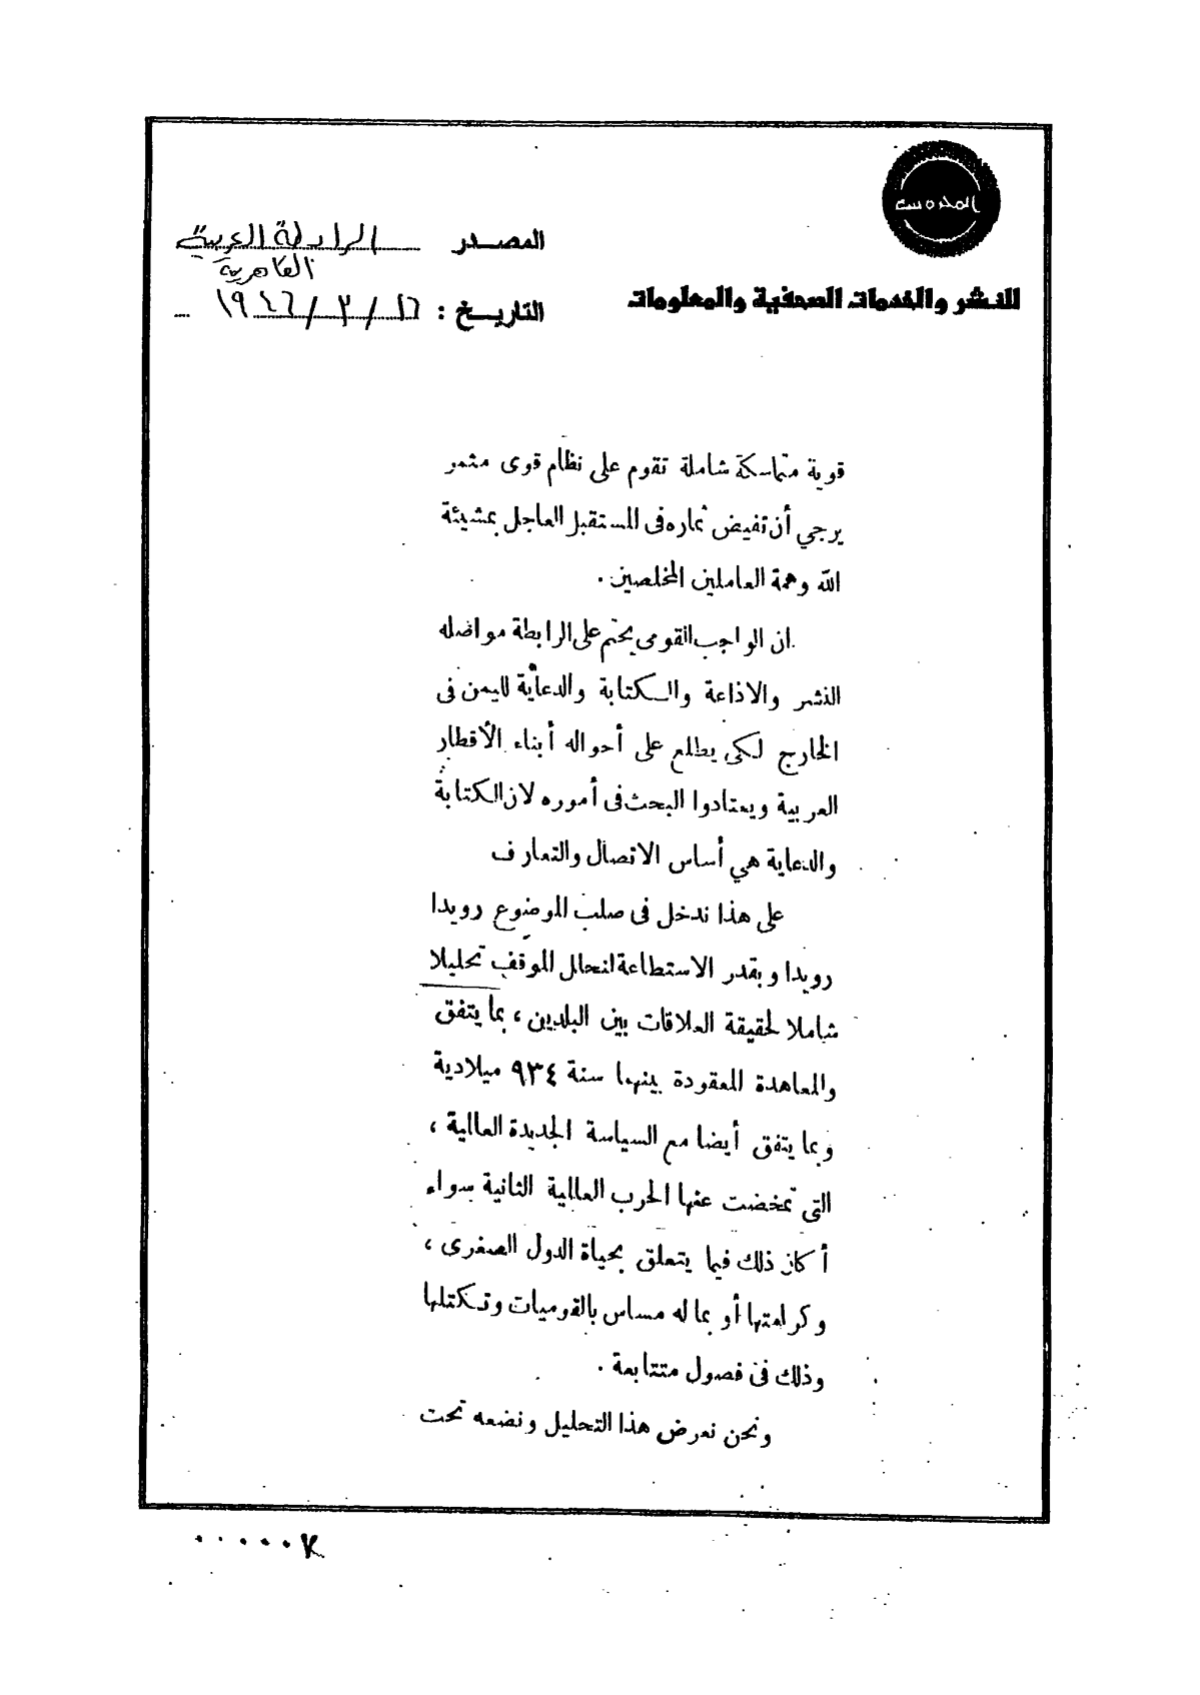 المحروسة
المصدر الرابطة العربية
القاهرية
للنشر والخدمات الصحفية والمعلومات
التاريخ : ١٦ / ٣ / ١٩٤٦
قوية متماسكة شاملة تقوم على نظام قوى مثمر
يرجي أن تفيض ثماره فى المستقبل العاجل بمشيئة
الله وهمة العاملين المخلصين .
ان الواجب القومى يحتم على الرابطة مواصله
النشر والاذاعة والكتابة والدعاية لليمن فى
الخارج لكى يطلع على أحواله أبناء الأقطار
العربية ويعتادوا البحث فى أموره لان الكتابة
والدعاية هي أساس الاتصال والتعارف
على هذا ندخل فى صلب الموضوع رويدا
رويدا وبقدر الاستطاعة لنحلل الموقف تحليلا
شاملا لحقيقة العلاقات بين البلدين ، بما يتفق
والمعاهدة المعقودة بينهما سنة ٩٣٤ ميلادية
وبما يتفق أيضا مع السياسة الجديدة العالمية ،
التى تمخضت عنها الحرب العالمية الثانية سواء
أكان ذلك فيما يتعلق بحياة الدول الصغرى ،
وكرامتها أو بما له مساس بالقوميات وتكتلها
وذلك فى فصول متتابعة .
ونحن نعرض هذا التحليل ونضعه تحت